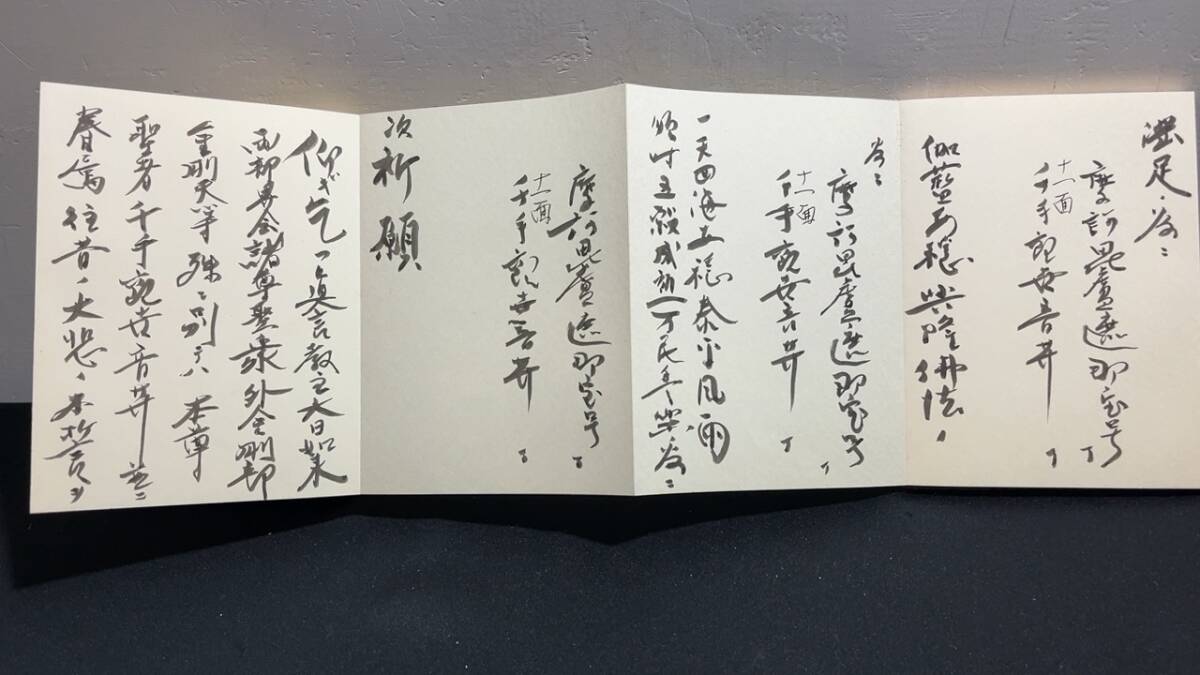 満足ノ為ニ
摩訶毘盧遮那宝号 丁
十一面
千手観世音菩 丁
伽藍安穏興隆佛法ノ
為ニ
摩訶毘盧遮那宝号 丁
十一面
千手観世音菩 丁
一天四海安穏泰平風雨
順時五穀成就万民豊楽ノ為ニ
摩訶毘盧遮那宝号 丁
十一面
千手観世音菩 丁
次祈願
仰ぎ乞フ真言教主大日如来
両部界会諸尊聖衆外金剛部
金剛天等殊ニ別テハ本尊
聖者千手観世音菩
往昔ノ大悲ノ本誓ヲ